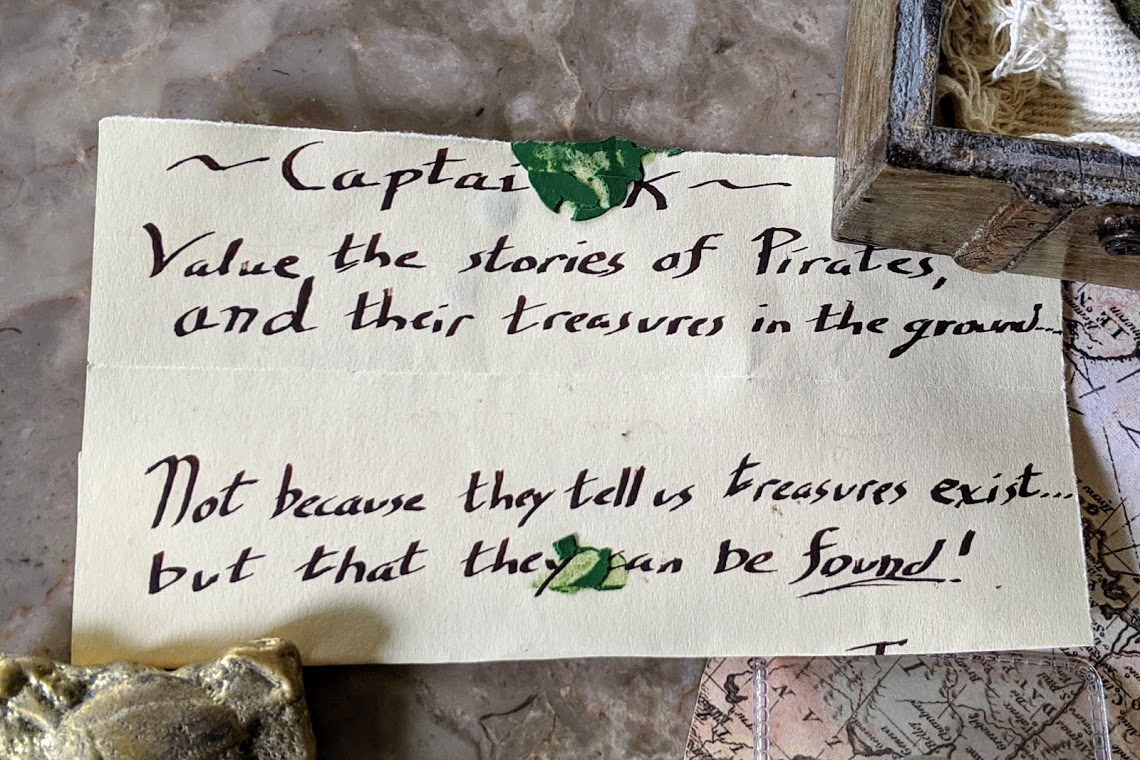 ~ Captai k ~
Value the stories of Pirates,
and their treasures in the ground...
Not because they tell us treasures exist...
but that they can be found!